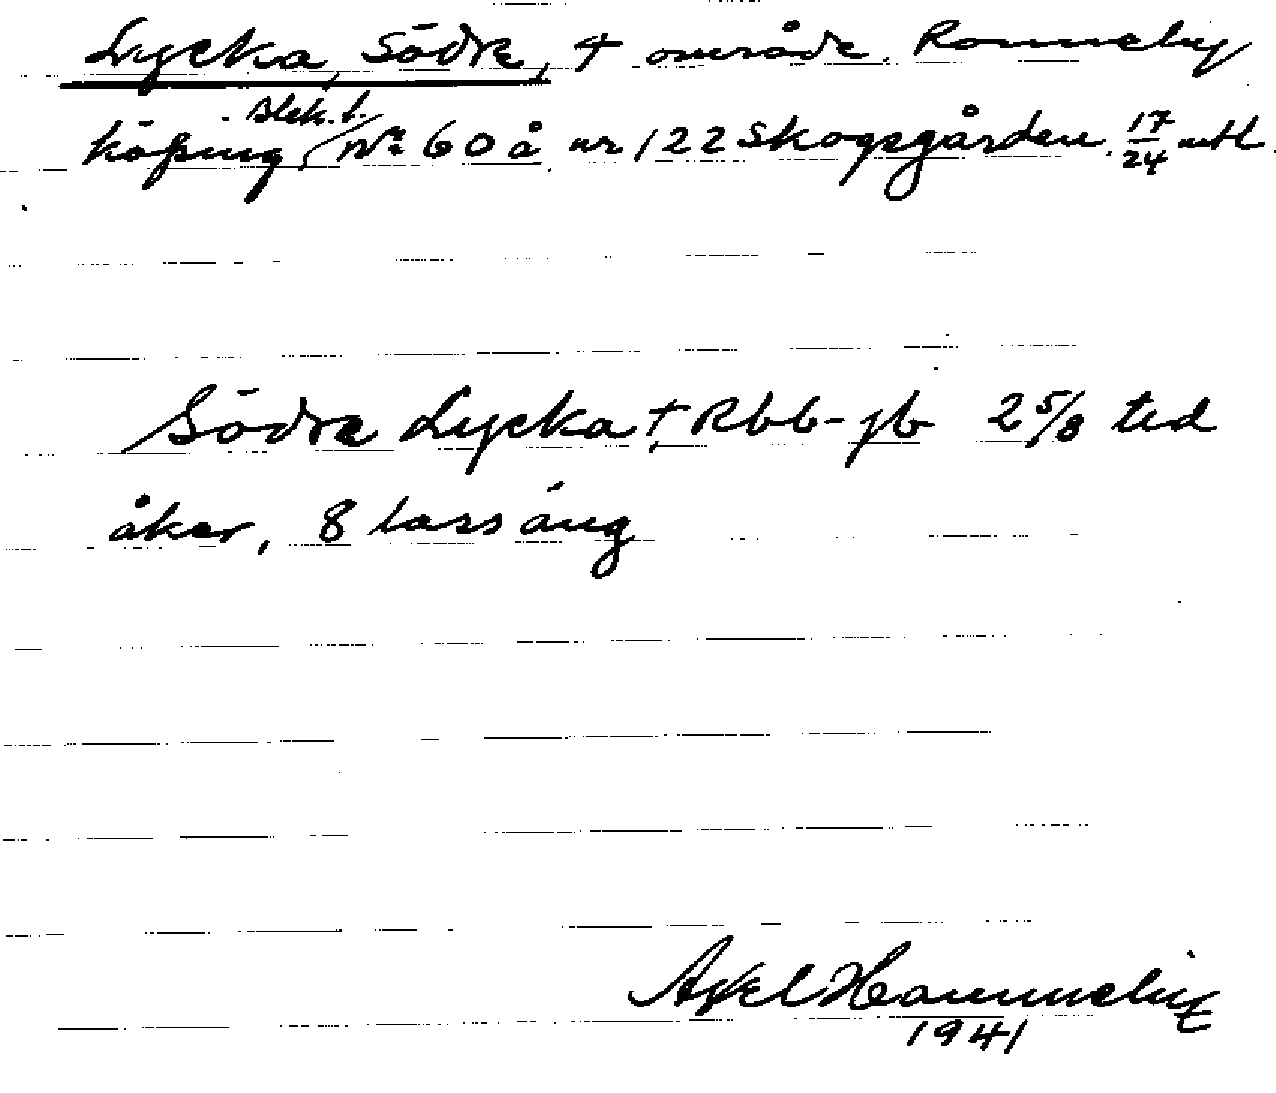 Lycka, Södre, † område. Ronneby
slek. t.
köping, Nr 60 å nr 122 Skogsgården. 17/24 mtl
Södre Lycka † Rbb-jb 2 5/8 tld
åker, 8 lass äng
Axel Hamneby
1941